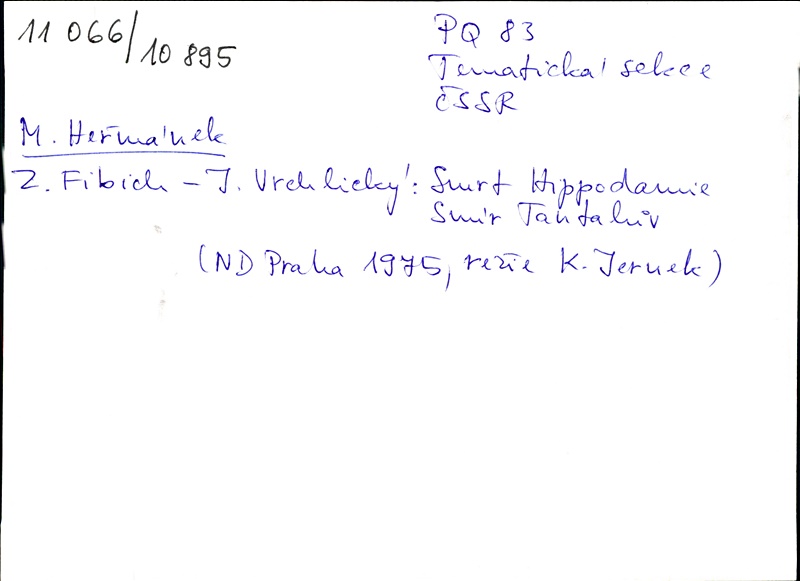 11 066/10 895
PQ 83
Tematická sekce
ČSSR
M. Heřmánek
Z. Fibich - J. Vrchlický: Smrt Hippodamie
Smír Tantalův
(ND Praha 1975, režie K. Jernek)